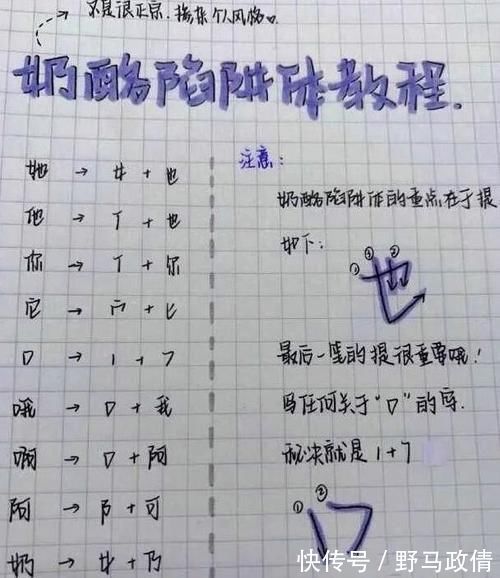 不是很正宗,掺杂个人风格。
奶酪陷阱体教程.
她 → 女 + 也
他 → 亻 + 也
你 → 亻 + 尔
它 → 宀 + 匕
口 → 1 + 7
哦 → 口 + 我
啊 → 口 + 阿
阿 → 阝 + 可
奶 → 女 + 乃
注意:
奶酪陷阱体的重点在于提
如下:
① ③ ②
也
最后一笔的提很重要哦!
写任何关于“口”的字.
秘诀就是 1+7
① ②
口
快传号 / 野马政倩